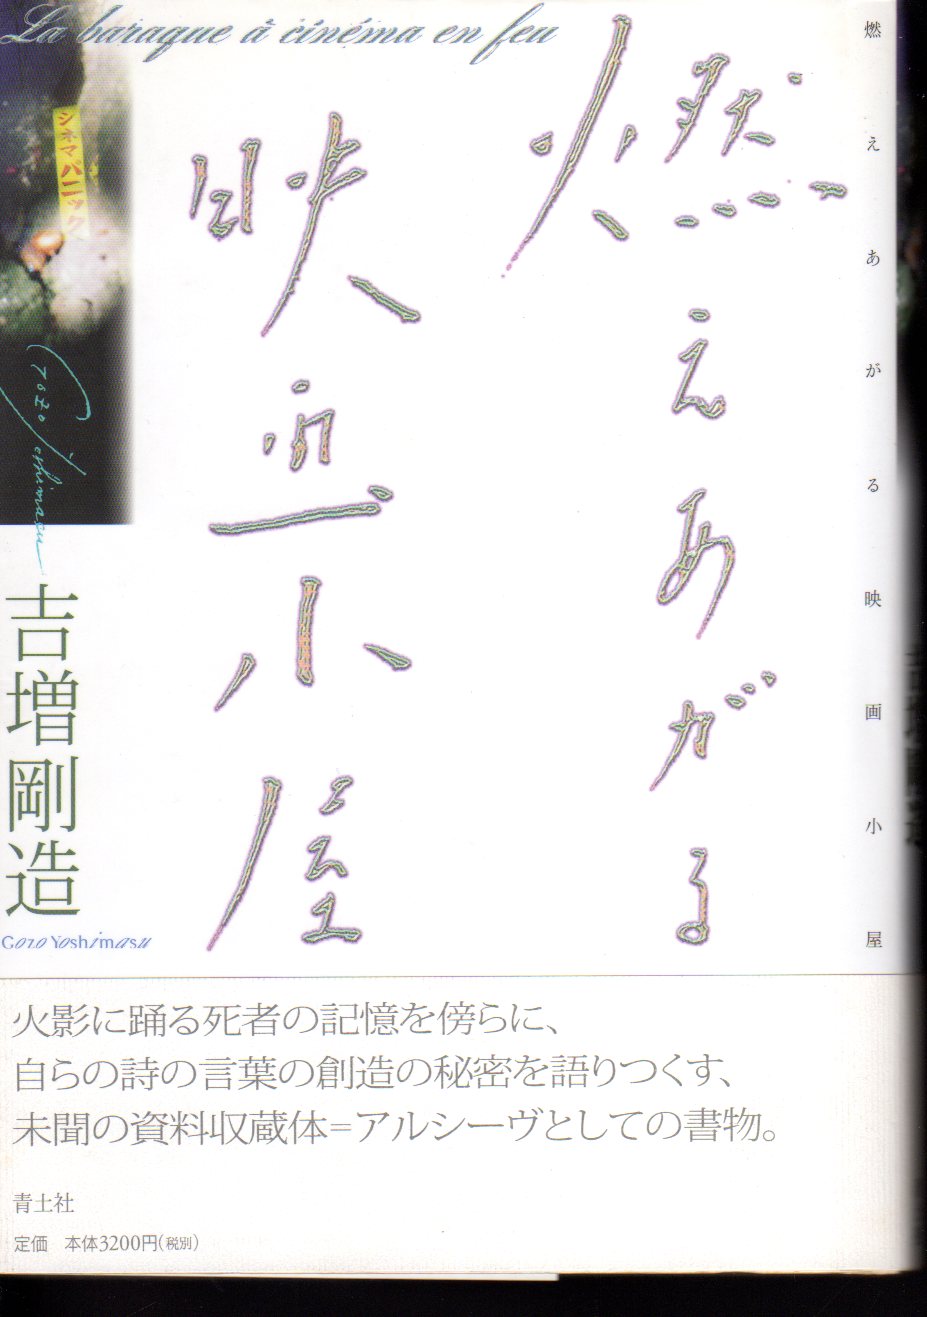 La baraque à cinéma en feu
燃えあがる映画小屋
シネマパニック
燃えあがる
映画小屋
Gozo Yoshimasu
吉増剛造
Gozo Yoshimasu
火影に踊る死者の記憶を傍らに、
自らの詩の言葉の創造の秘密を語りつくす、
未聞の資料収蔵体=アルシーヴとしての書物。
青土社
定価 本体3200円(税別)